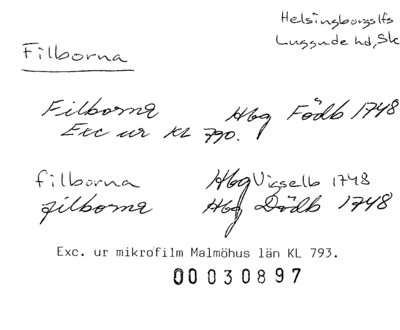 Helsingborgs lfs
Luggude hd, Sk
Filborna
Filborna Hbg Födb 1748
Exc ur KL 790.
filborna Hbg Vigselb 1748
filborna Hbg Dödb 1748
Exc. ur mikrofilm Malmöhus län KL 793.
00030897